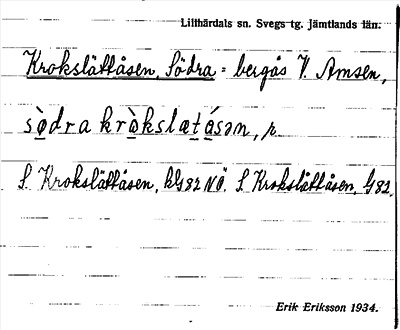 Lillhärdals sn. Svegs tg. Jämtlands län.
Krokslåttåsen, Södra = bergås V. Amsen,
sø̀dra krò̀kslætá̱sən, p.
S. Krokslåttåsen, kG 82 NÖ. S. Krokslåttåsen, G 82.
Erik Eriksson 1934.